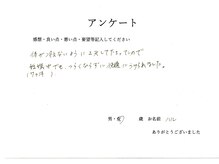 アンケート
感想・良い点・悪い点・要望等記入してください
体が冷えないように工夫して下さったので
妊娠中でも、つらくならずに快適にうけられました。
(7ヶ月)
男・女 歳 お名前
ありがとうございました